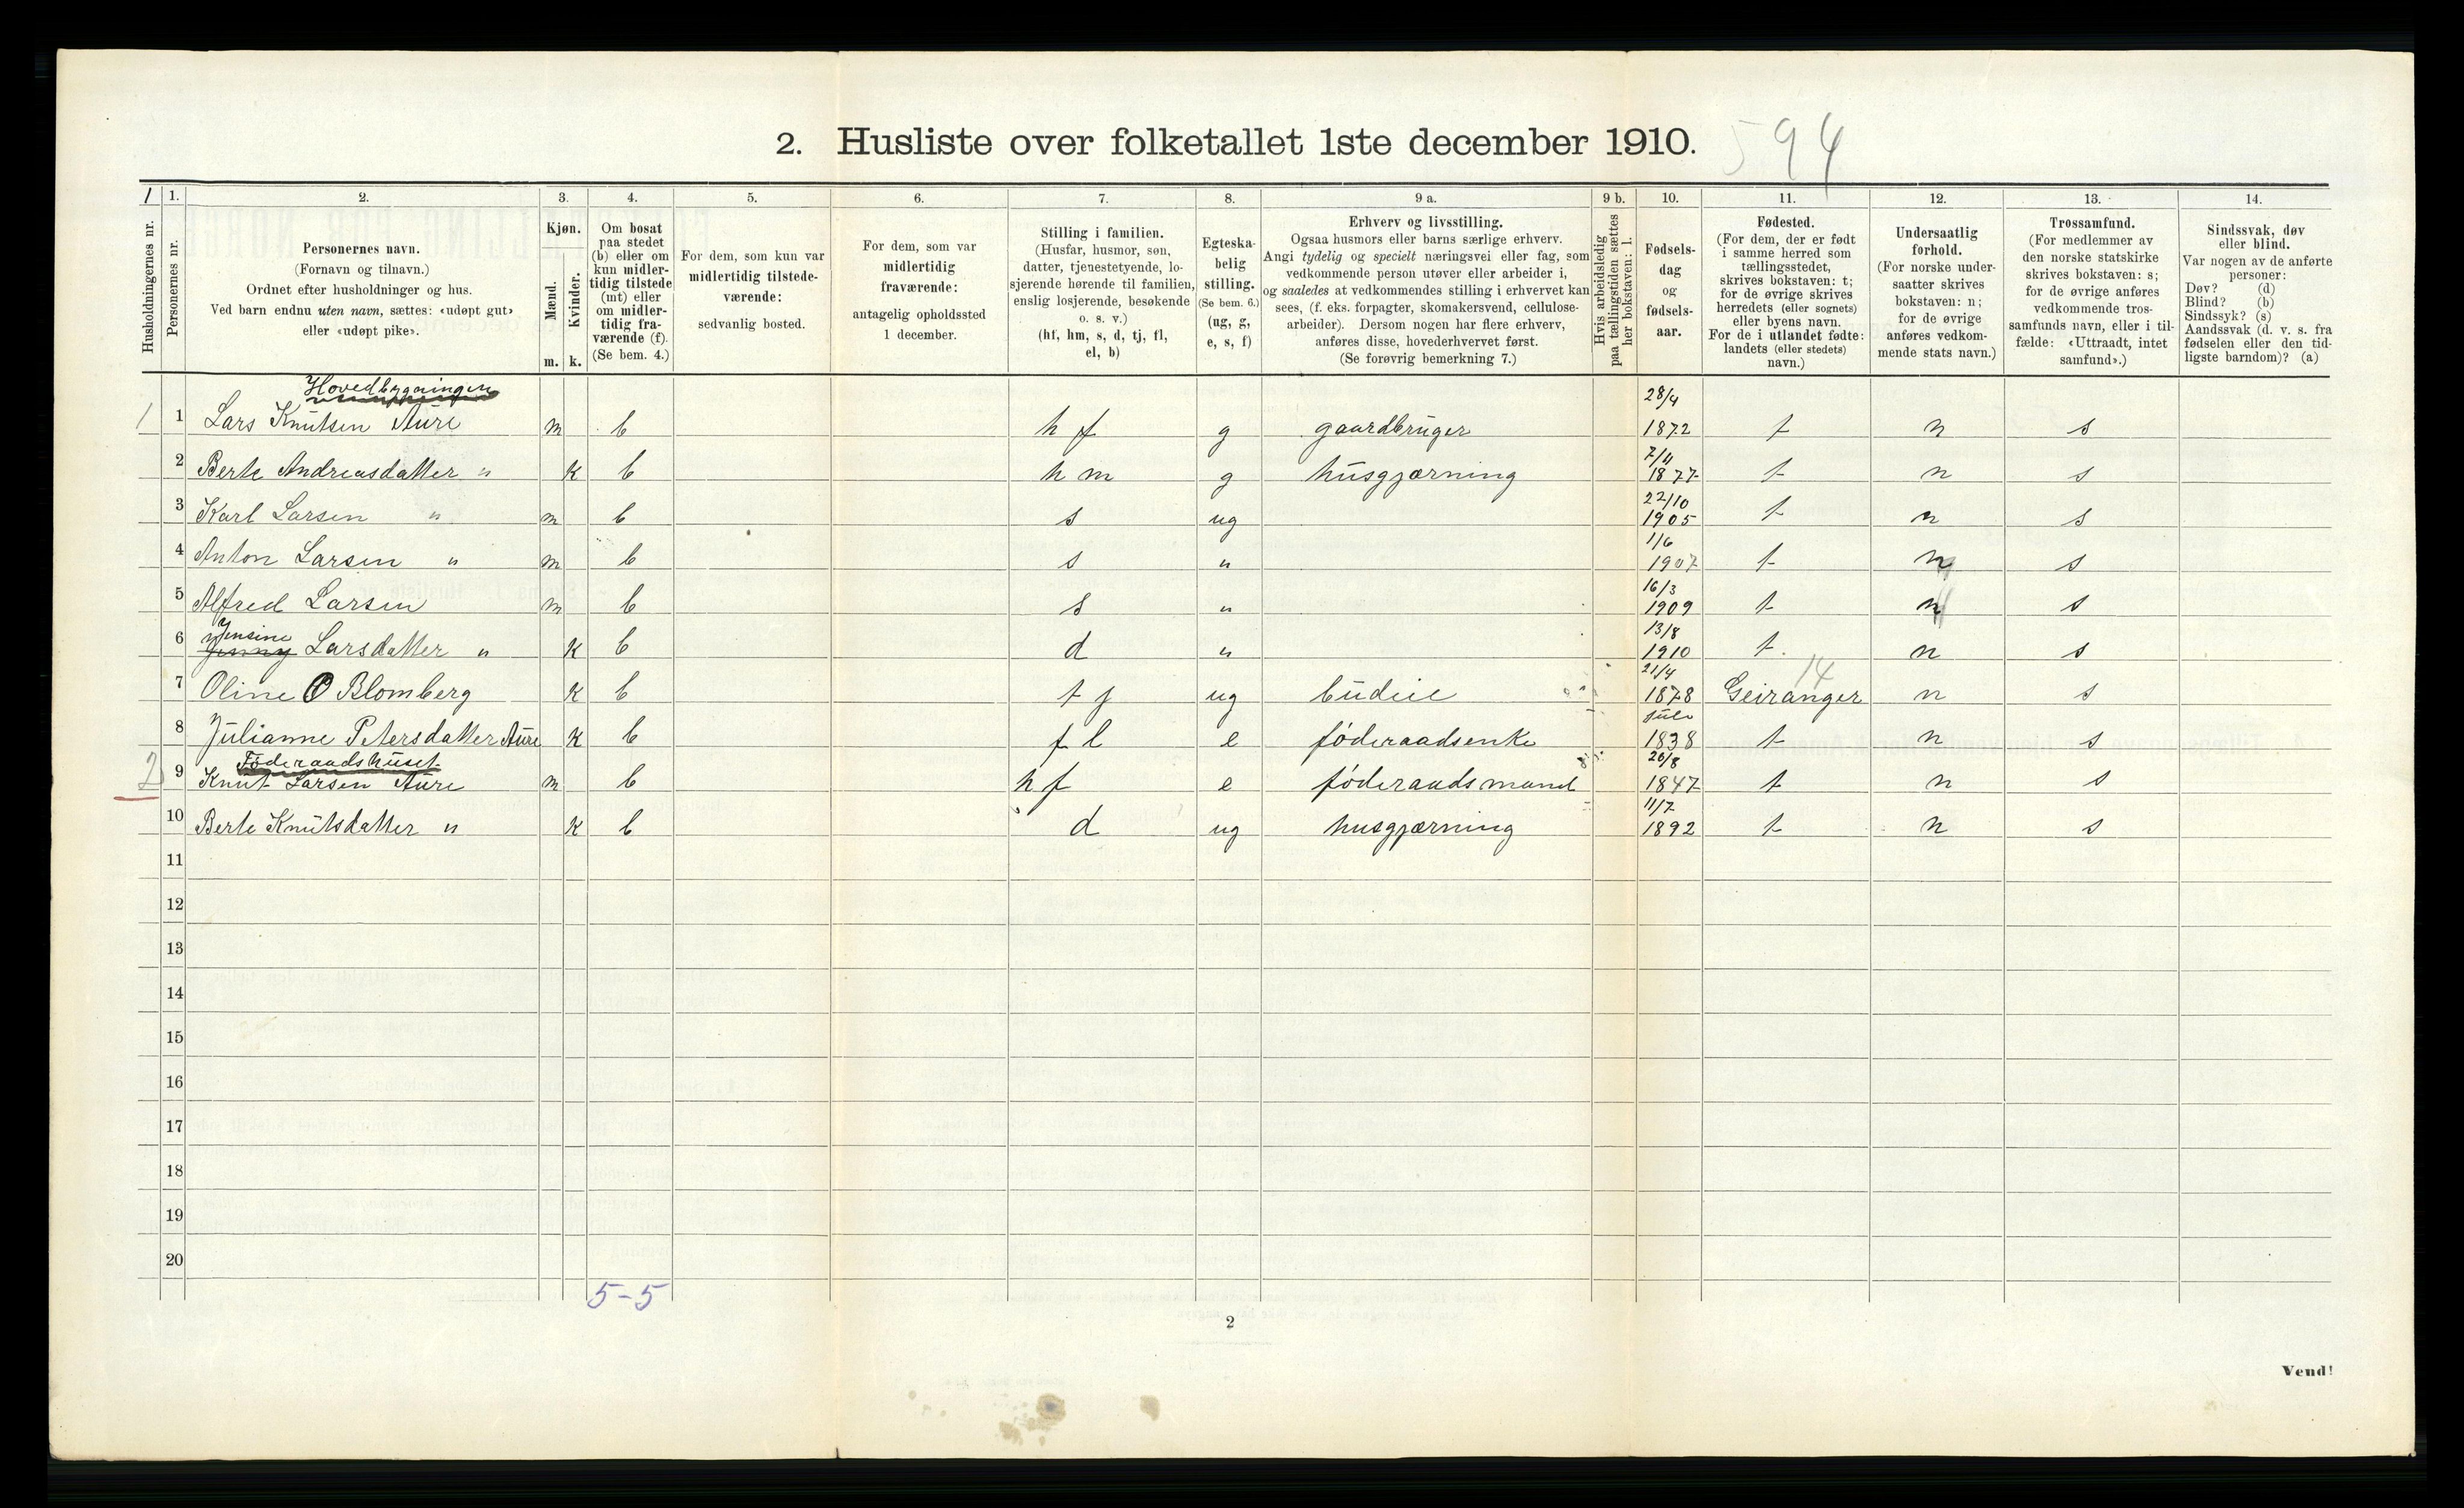 2. Husliste over folketallet 1ste december 1910. 594
1 1. 2. 3. 4. 5. 6. 7. 8. 9 a. 9 b. 10. 11. 12. 13. 14.
Husholdningernes nr.
Personernes nr.
Personernes navn.
(Fornavn og tilnavn.)
Ordnet efter husholdninger og hus.
Ved barn endnu uten navn, sættes: «udøpt gut»
eller «udøpt pike».
Kjøn.
Mænd.
m.
Kvinder.
k.
Om bosat
paa stedet
(b) eller om
kun midler-
tidig tilstede
(mt) eller
om midler-
tidig fra-
værende (f).
(Se bem. 4.)
For dem, som kun var
midlertidig tilstede-
værende:
sedvanlig bosted.
For dem, som var
midlertidig
fraværende:
antagelig opholdssted
1 december.
Stilling i familien.
(Husfar, husmor, søn,
datter, tjenestetyende, lo-
sjerende hørende til familien,
enslig losjerende, besøkende
o. s. v.)
(hf, hm, s, d, tj, fl,
el, b)
Egteska-
belig
stilling.
(Se bem. 6.)
(ug, g,
e, s, f)
Erhverv og livsstilling.
Ogsaa husmors eller barns særlige erhverv.
Angi tydelig og specielt næringsvei eller fag, som
vedkommende person utøver eller arbeider i,
og saaledes at vedkommendes stilling i erhvervet kan
sees, (f. eks. forpagter, skomakersvend, cellulose-
arbeider). Dersom nogen har flere erhverv,
anføres disse, hovederhvervet først.
(Se forøvrig bemerkning 7.)
Hvis arbeidsledig
paa tællingstiden sættes
her bokstaven: l.
Fødsels-
dag
og
fødsels-
aar.
Fødested.
(For dem, der er født
i samme herred som
tællingsstedet,
skrives bokstaven: t;
for de øvrige skrives
herredets (eller sognets)
eller byens navn.
For de i utlandet fødte:
landets (eller stedets)
navn.)
Undersaatlig
forhold.
(For norske under-
saatter skrives
bokstaven: n;
for de øvrige
anføres vedkom-
mende stats navn.)
Trossamfund.
(For medlemmer av
den norske statskirke
skrives bokstaven: s;
for de øvrige anføres
vedkommende tros-
samfunds navn, eller i til-
fælde: «Uttraadt, intet
samfund».)
Sindssvak, døv
eller blind.
Var nogen av de anførte
personer:
Døv? (d)
Blind? (b)
Sindssyk? (s)
Aandssvak (d. v. s. fra
fødselen eller den tid-
ligste barndom)? (a)
Hovedbygningen
1 1 Lars Knutsen Aure m b h f g gaardbruger 28/4 1872 t n s
2 Berte Andreasdatter " k b h m g husgjærning 7/11 1877 t n s
3 Karl Larsen " m b s ug 22/10 1905 t n s
4 Anton Larsen " m b s " 1/6 1907 t n s
5 Alfred Larsen m b s " 16/3 1909 t n s
6 Jensine Jenny Larsdatter " k b d " 13/8 1910 t. n s
7 Oline O Blomberg k b t j ug budeie 21/4 1878 Geiranger 14 n s
8 Julianne Petersdatter Aure k b f l e føderaadsenke 1838 t n s
Føderaadshuset
2 9 Knut Larsen Aure m b h f e føderaadsmand 20/8 1847 t n s
10 Berte Knutsdatter " k b d ug husgjærning 11/7 1892 t n s
11
12
13
14
15
16
17
18
19
20
5-5
2
Vend!